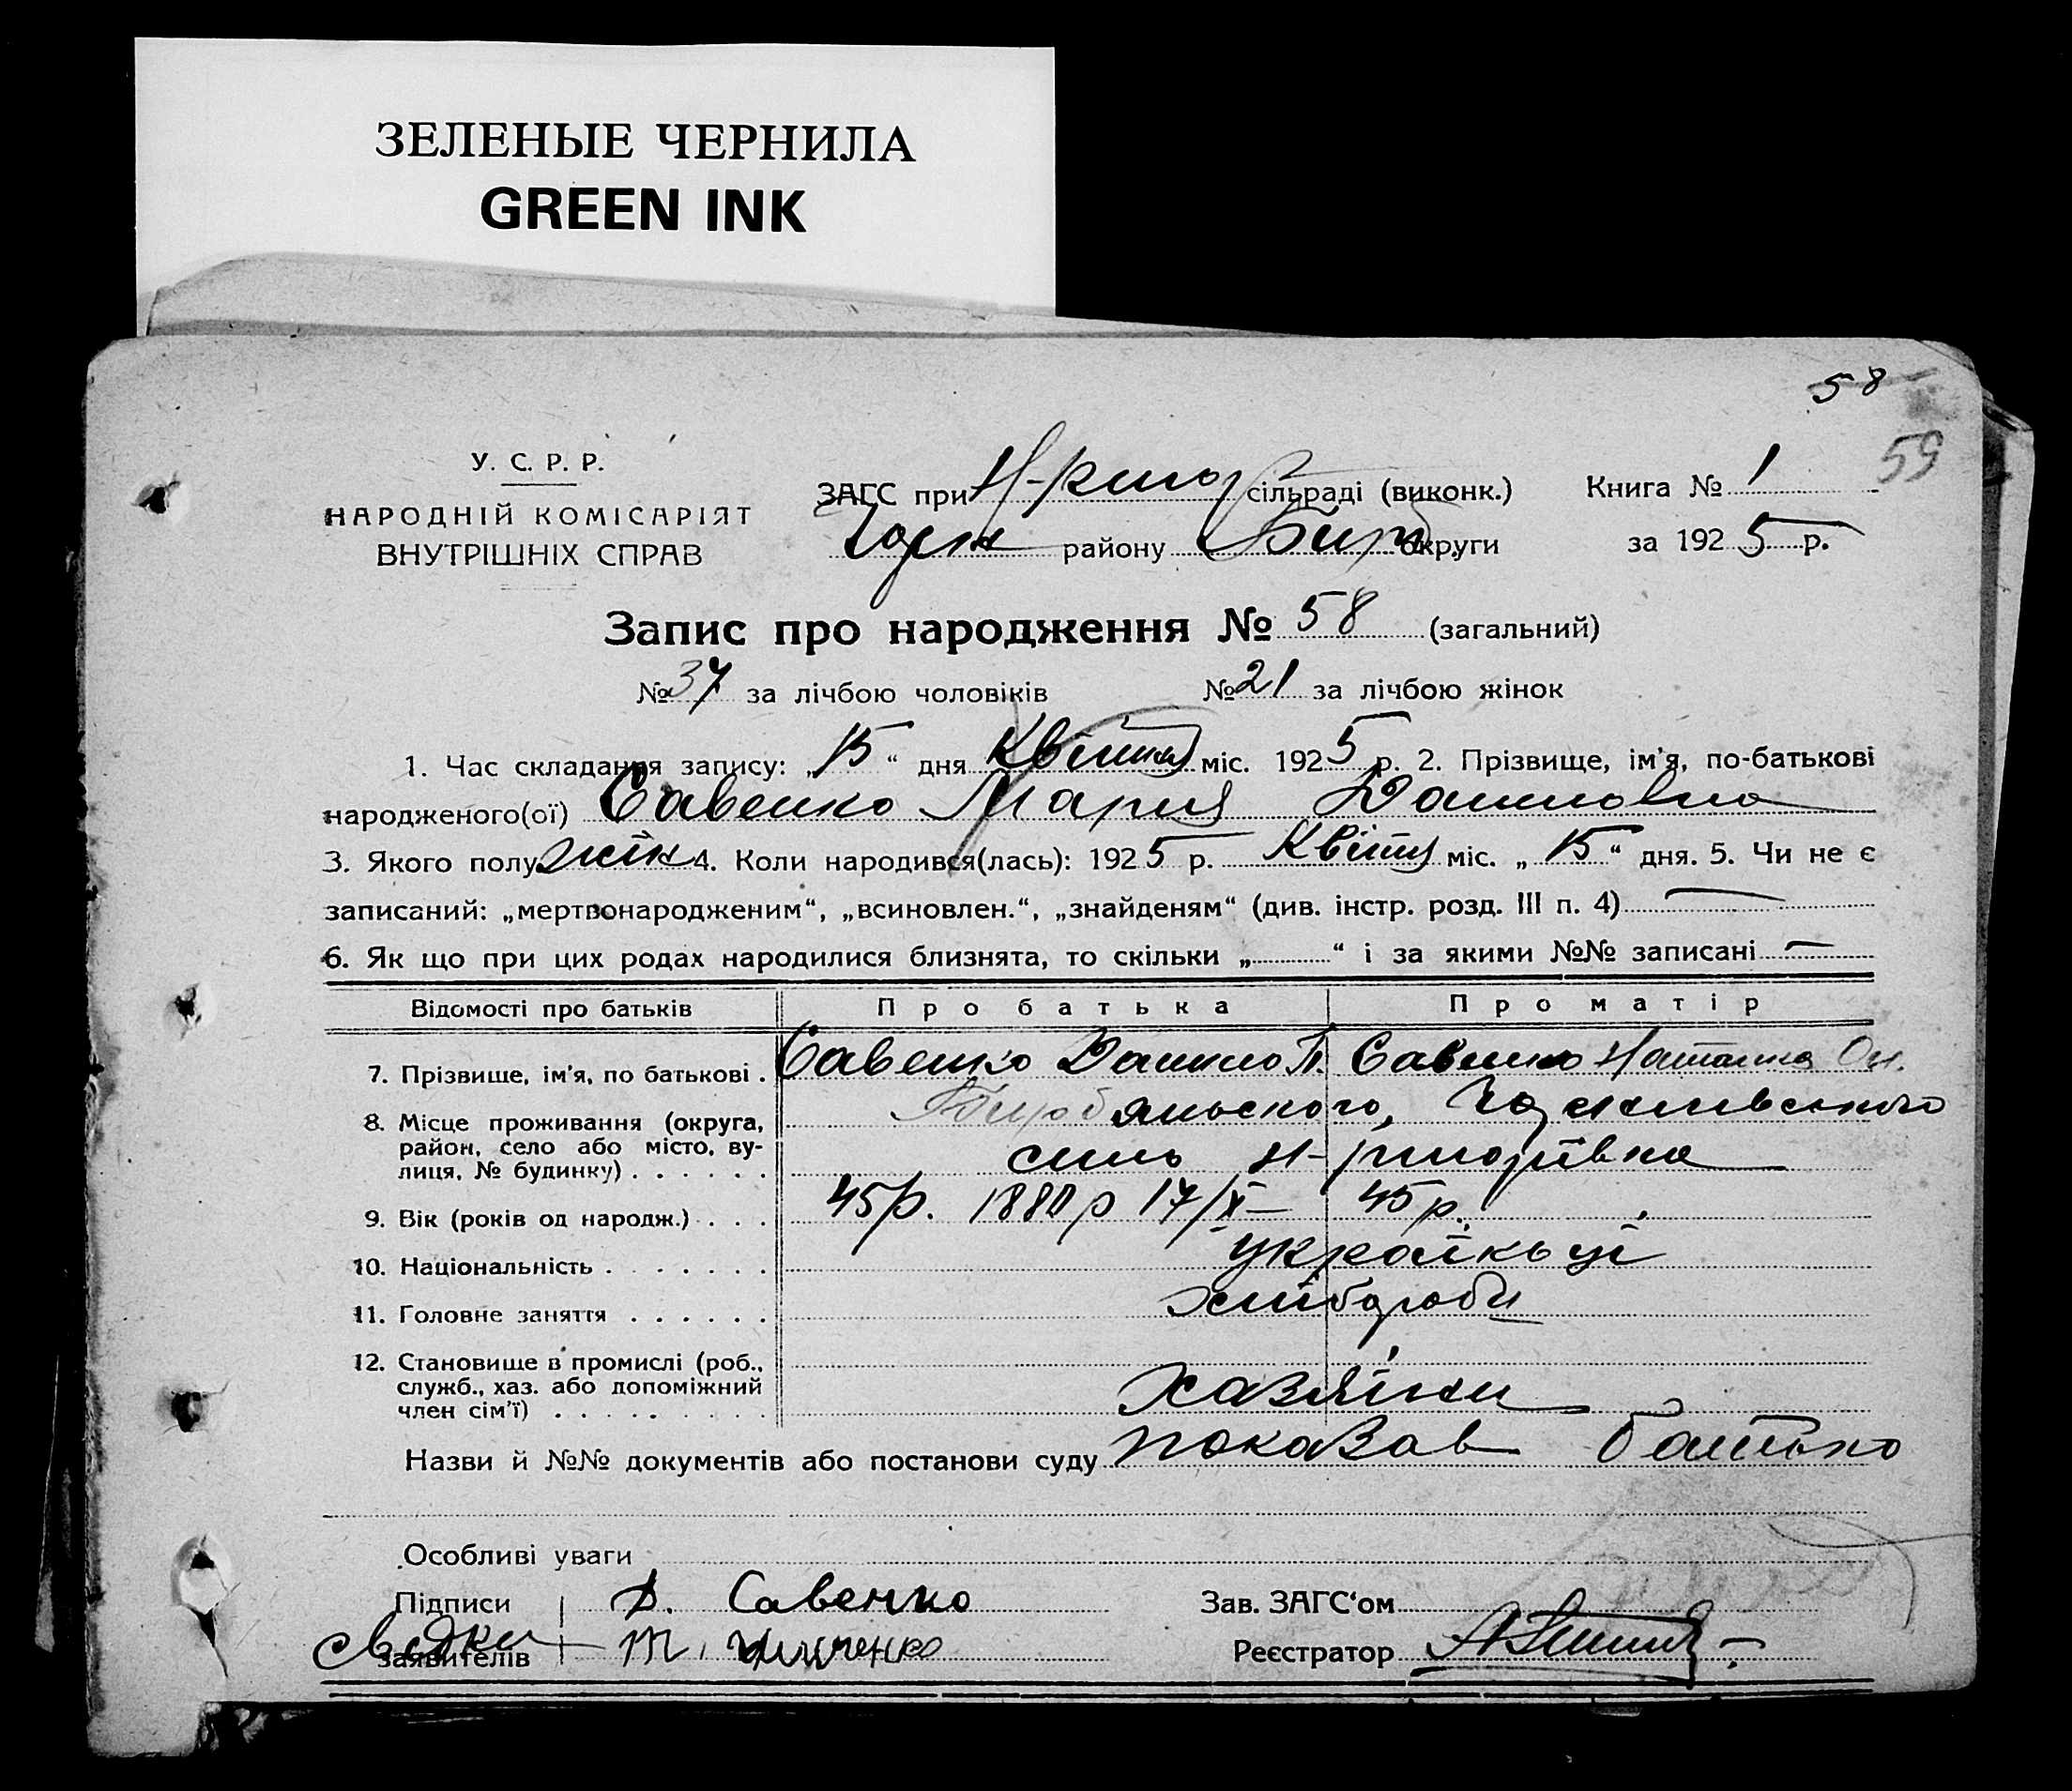 ЗЕЛЕНЫЕ ЧЕРНИЛА
GREEN INK
58
59
У. С. Р. Р.
НАРОДНІЙ КОМІСАРІЯТ
ВНУТРІШНІХ СПРАВ
ЗАГС при сільраді (виконк.) Книга № 1
району округи за 1925 р.
Запис про народження № 58 (загальний)
№ 37 за лічбою чоловіків № 21 за лічбою жінок
1. Час складання запису: „15“ дня Квітня міс. 1925 р. 2. Прізвище, ім'я, по-батькові
народженого(ої) Савенко Мария Даниловна
3. Якого полу жін 4. Коли народився(лась): 1925 р. Квітня міс. „15“ дня. 5. Чи не є
записаний: „мертвонародженим“, „всиновлен.“, „знайденям“ (див. інстр. розд. III п. 4)
6. Як що при цих родах народилися близнята, то скільки „ “ і за якими №№ записані
Відомості про батьків Про батька Про матір
7. Прізвище, ім'я, по батькові . Савенко Данило П. Савенко Наталка Он.
8. Місце проживання (округа,
район, село або місто, ву-
лиця, № будинку) . . . . . . село
9. Вік (років од народж.) . . . 45 р. 1880 р 17/X 45 р.
10. Національність . . . . . . . українці
11. Головне заняття . . . . . . хлібороби
12. Становище в промислі (роб.,
служб., хаз. або допоміжний
член сім'ї) . . . . . . . . . хазяїни
Назви й №№ документів або постанови суду показав батько
Особливі уваги
Підписи Д. Савенко Зав. ЗАГС‘ом
заявителів Т. Реєстратор